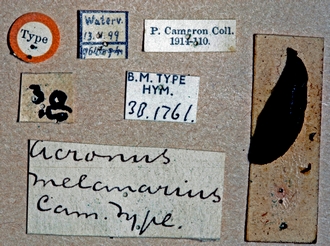 Type
Waterv.
13.4.99
P. Cameron Coll.
1914-110.
B.M. TYPE
HYM.
3B.1761.
Acronus
melanarius
Cam. Type.